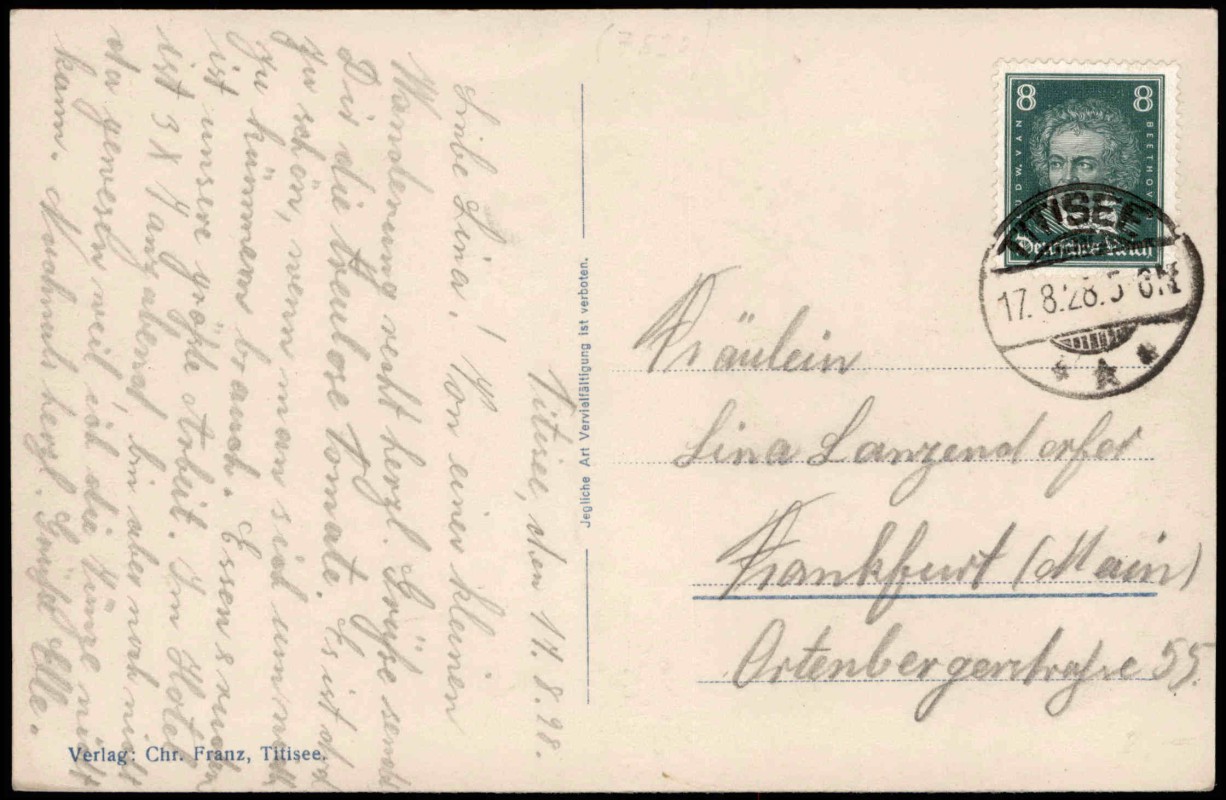 Titisee, den 17. 8. 28.
Liebe Lina! Von einer kleinen
Wanderung recht herzl. Grüße sendet
Dir die treulose Tomate. Es ist doch
zu schön, wenn man sich um nichts
zu kümmern brauch. Essen suchen
ist unsere größte Arbeit. Im Hotel
ist 3 X 4 angebaut, bin aber noch nicht
da gewesen weil ich die nicht
kann. Nochmals herzl. Grüße Elle.
Verlag: Chr. Franz, Titisee.
Jegliche Art Vervielfältigung ist verboten.
8 8
LUDW. VAN BEETHOVEN
Deutsches Reich
TITISEE
17. 8. 28. 5-6 N
Fräulein
Lina Lanzendorfer
Frankfurt (Main)
Ortenbergerstraße 55.